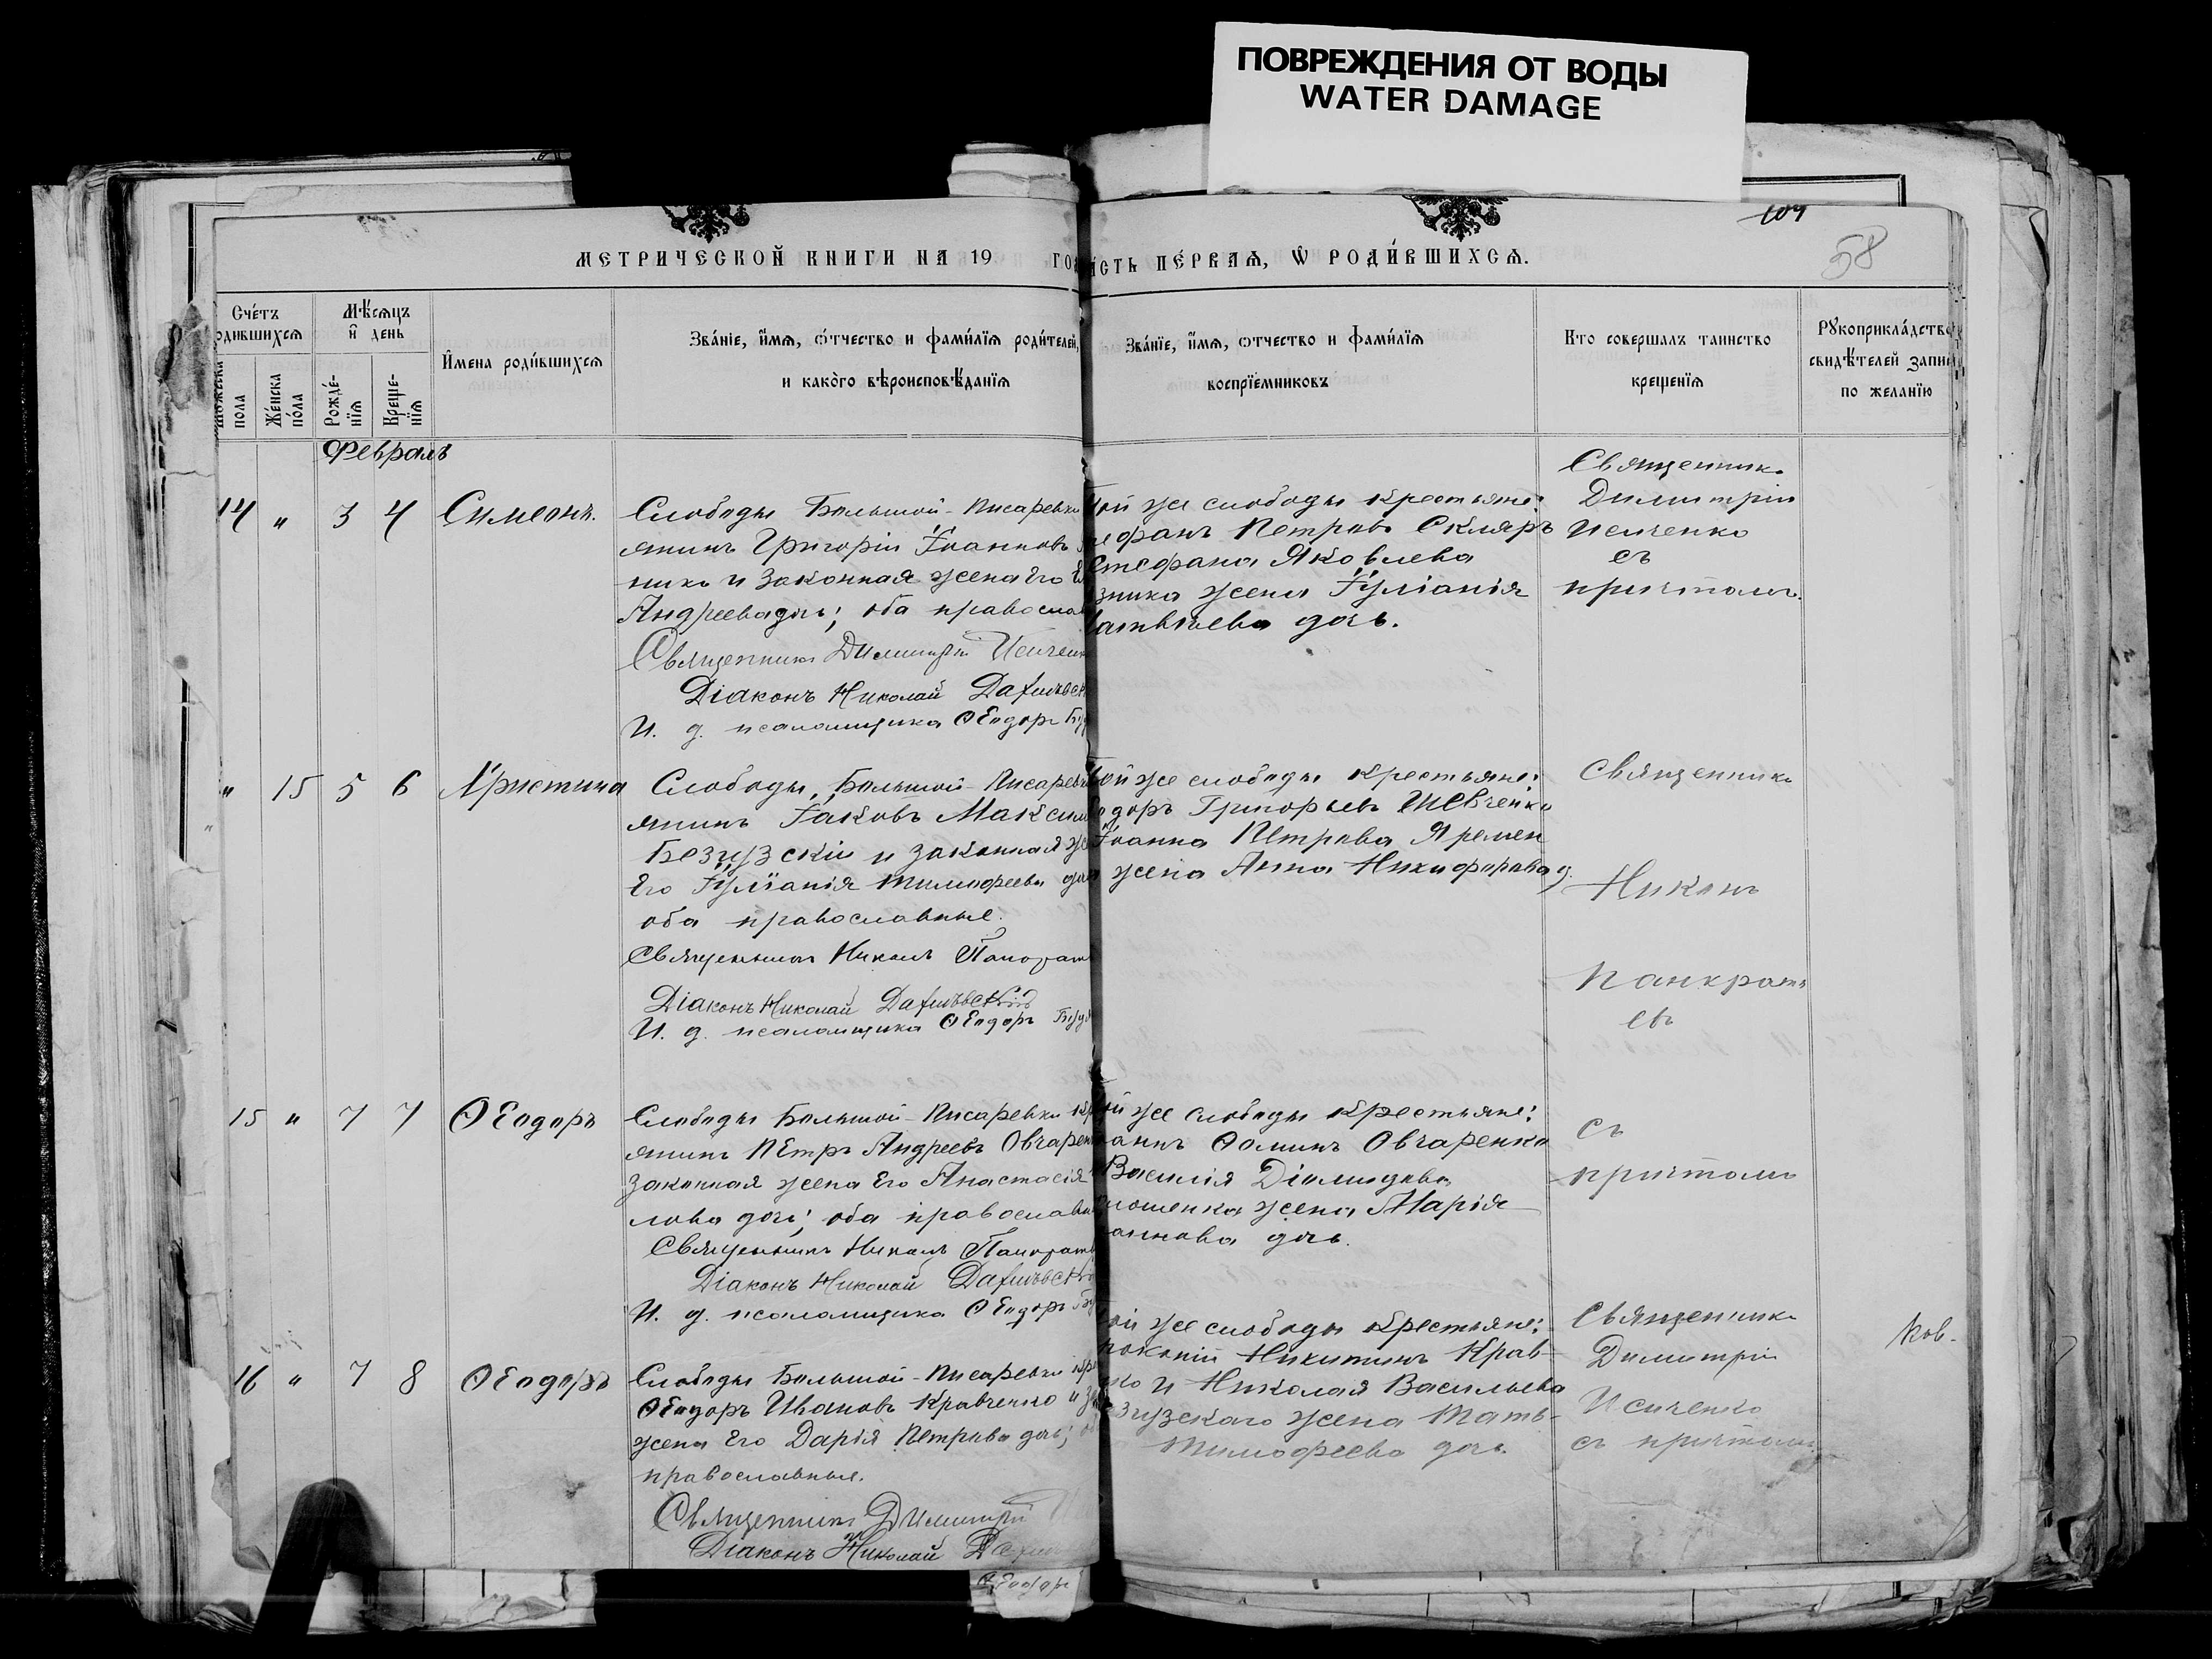 ПОВРЕЖДЕНИЯ ОТ ВОДЫ
WATER DAMAGE
104
58
МЕТРИЧЕСКОЙ КНИГИ НА 19 ГОД
ЧАСТЬ ПЕРВАЯ, Ѡ РОДИВШИХСЯ.
Счетъ
родившихся
Мѣсяцъ
и день
Имена родившихся
Званіе, имя, отчество и фамилія родителей,
и какого вѣроисповѣданія
Званіе, имя, отчество и фамилія
воспріемниковъ
Кто совершалъ таинство
крещенія
Рукоприкладство
свидѣтелей записи
по желанію
пола
Женска
пола
Рожде-
нія
Креще-
нія
Февраль
14 " 3 4 Симеонъ.
Слободы Большой-Писаревки
янинъ Григорій Іоанновъ
никъ и законная жена его
Андреева дочь; оба правосла
Священникъ Димитрій Исиченко
Діаконъ Николай
И. д. псаломщика Ѳеодоръ
той же слободы крестьяне:
ефанъ Петровъ Скляръ
Стефана Яковлева
зника жена Іуліанія
Матвѣева дочь.
Священникъ
Димитрій
Исиченко
съ
причтомъ.
" 15 5 6 Христина
Слободы Большой-Писаревки
янинъ Іаковъ Максим
Безузскій и законная же
его Іуліанія Тимофеева дочь
оба православные.
Священникъ Никонъ Панкрат
Діаконъ Николай
И. д. псаломщика Ѳеодоръ
той же слободы крестьяне:
одоръ Григорьевъ Шевченко
Іоанна Петрова Яремен
жена Анна Никифорова д.
Священникъ
Никонъ
Панкрать
евъ
съ
причтомъ
15 " 7 7 Ѳеодоръ
Слободы Большой-Писаревки кр
янинъ Петръ Андреевъ Овчарен
законная жена его Анастасія
лова дочь; оба православн
Священникъ Никонъ Панкрат
Діаконъ Николай
И. д. псаломщика Ѳеодоръ
той же слободы крестьяне:
оаннъ Ѳоминъ Овчаренко
Василія Діомидова
мошенка жена Марія
аннова дочь.
16 " 7 8 Ѳеодоръ
Слободы Большой-Писаревки кре
Ѳеодоръ Ивановъ Кравченко и за
жена его Дарія Петрова дочь;
православные.
Священникъ Димитрій
Діаконъ Николай
Ѳеодоръ
той же слободы крестьяне:
рокопій Никитинъ Крав-
ко и Николая Васильева
езузскаго жена Тать-
Тимофеева дочь
Священникъ
Димитрій
Исиченко
съ причтомъ